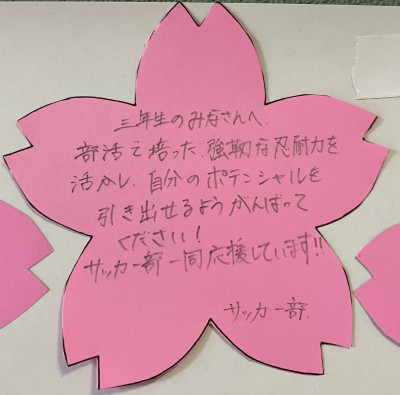 三年生のみなさんへ
部活で培った、強靭な忍耐力を
活かし、自分のポテンシャルを
引き出せるようがんばって
ください！
サッカー部一同応援しています!!
サッカー部.